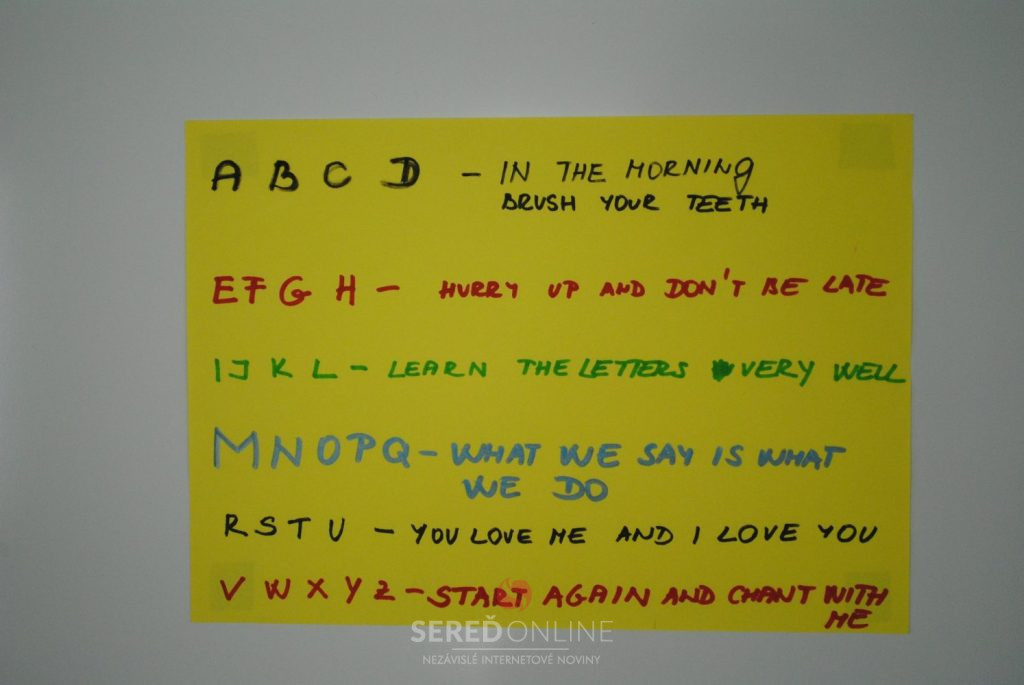 A B C D - IN THE MORNING
BRUSH YOUR TEETH
E F G H - HURRY UP AND DON'T BE LATE
I J K L - LEARN THE LETTERS VERY WELL
M N O P Q - WHAT WE SAY IS WHAT
WE DO
R S T U - YOU LOVE ME AND I LOVE YOU
V W X Y Z - START AGAIN AND CHANT WITH
ME
SEREĎONLINE
NEZÁVISLÉ INTERNETOVÉ NOVINY